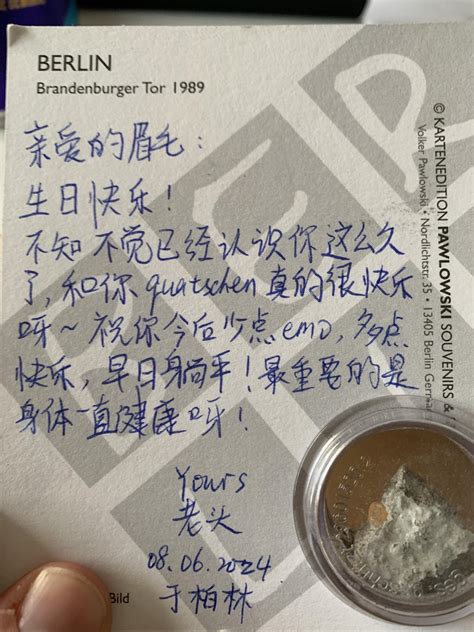 BERLIN
Brandenburger Tor 1989
亲爱的眉毛：
生日快乐！
不知不觉已经认识你这么久
了，和你 quatschen 真的很快乐
呀～祝你今后少点emo，多点
快乐，早日躺平！最重要的是
身体一直健康呀！
Yours
老头
08.06.2024
于柏林
© KARTENEDITION PAWLOWSKI SOUVENIRS &
Volker Pawlowski • Nordlichtstr. 35 • 13405 Berlin Germa
Bild